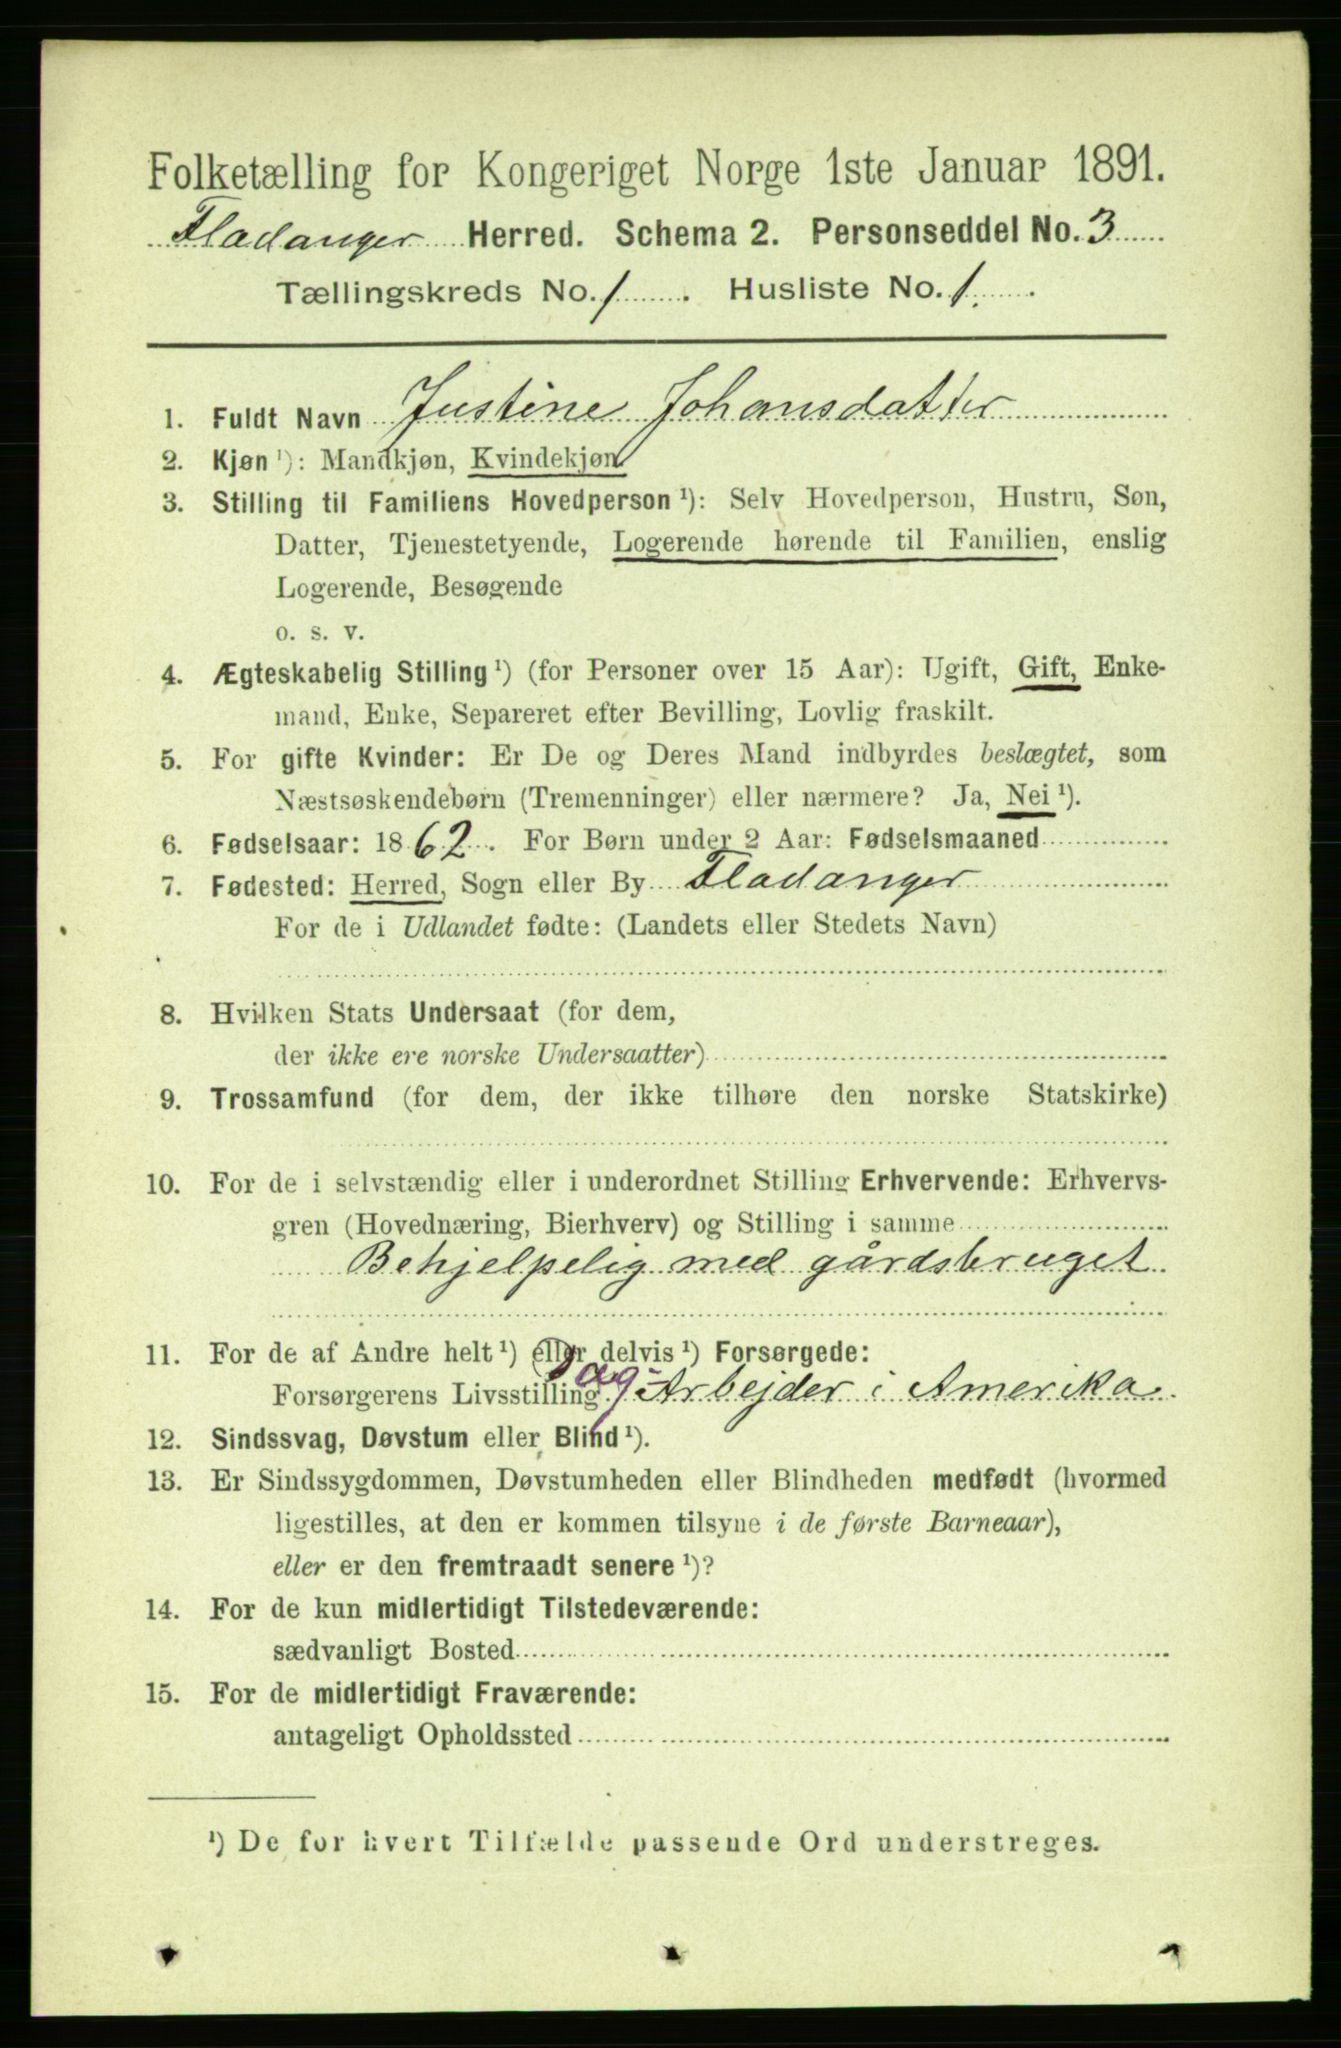 Folketælling for Kongeriget Norge 1ste Januar 1891.
Fladanger Herred. Schema 2. Personseddel No. 3
Tællingskreds No. 1. Husliste No. 1.
1. Fuldt Navn Justine Johansdatter
2. Kjøn ¹): Mandkjøn, Kvindekjøn
3. Stilling til Familiens Hovedperson ¹): Selv Hovedperson, Hustru, Søn,
Datter, Tjenestetyende, Logerende hørende til Familien, enslig
Logerende, Besøgende
o. s. v.
4. Ægteskabelig Stilling ¹) (for Personer over 15 Aar): Ugift, Gift, Enke-
mand, Enke, Separeret efter Bevilling, Lovlig fraskilt.
5. For gifte Kvinder: Er De og Deres Mand indbyrdes beslægtet, som
Næstsøskendebørn (Tremenninger) eller nærmere? Ja, Nei ¹).
6. Fødselsaar: 1862. For Børn under 2 Aar: Fødselsmaaned
7. Fødested: Herred, Sogn eller By Fladanger
For de i Udlandet fødte: (Landets eller Stedets Navn)
8. Hvilken Stats Undersaat (for dem,
der ikke ere norske Undersaatter)
9. Trossamfund (for dem, der ikke tilhøre den norske Statskirke)
10. For de i selvstændig eller i underordnet Stilling Erhvervende: Erhvervs-
gren (Hovednæring, Bierhverv) og Stilling i samme
Behjelpelig med gårdsbruget
11. For de af Andre helt ¹) eller delvis ¹) Forsørgede:
Forsørgerens Livsstilling Arbejder i Amerika
12. Sindssvag, Døvstum eller Blind ¹).
13. Er Sindssygdommen, Døvstumheden eller Blindheden medfødt (hvormed
ligestilles, at den er kommen tilsyne i de første Barneaar),
eller er den fremtraadt senere ¹)?
14. For de kun midlertidigt Tilstedeværende:
sædvanligt Bosted
15. For de midlertidigt Fraværende:
antageligt Opholdssted
¹) De for hvert Tilfælde passende Ord understreges.